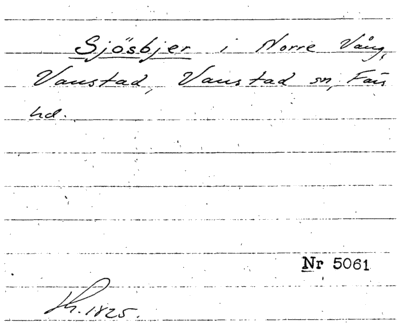 Sjösbjer i Norre Vång,
Vanstad, Vanstad sn, Fär
hd.
Nr 5061
1825.